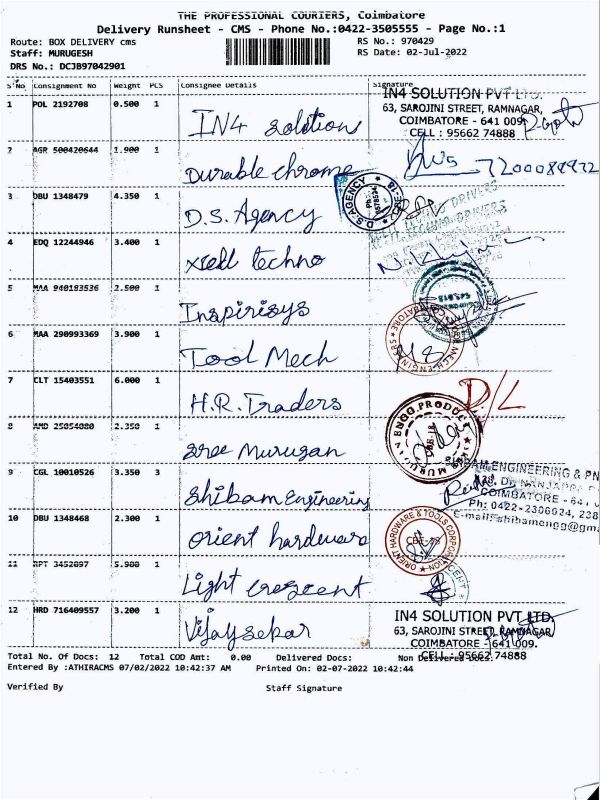 THE PROFESSIONAL COURIERS, Coimbatore
Delivery Runsheet - CMS - Phone No.:0422-3505555 - Page No.:1
Route: BOX DELIVERY cms
RS No.: 970429
Staff: MURUGESH
RS Date: 02-Jul-2022
DRS No.: DCJB97042901
S No Consignment No Weight PCS Consignee Details Signature
IN4 SOLUTION PVT LTD.
63, SAROJINI STREET, RAMNAGAR,
COIMBATORE - 641 009.
CELL : 95662 74888
1 POL 2192708 0.500 1 IN4 Solution
2 AGR 500420644 1.900 1 Durable chrome
3 DBU 1348479 4.350 1 D.S. Agency
D.S. AGENCY
DRIVERS
4 EDQ 12244946 3.400 1 xsell techno
5 MAA 940183536 2.500 1 Inspirisys
6 MAA 290993369 3.900 1 Tool Mech
7 CLT 15403551 6.000 1 H.R. Traders D/L
8 AMD 25054080 2.350 1 Sree Murugan
ENGG.PRODUCT
9 CGL 10010526 3.350 3 Shibam Engineering
ENGINEERING &
COIMBATORE - 641
Ph: 0422-2306924,
10 DBU 1348468 2.300 1 orient hardware
ORIENT HARDWARE & TOOLS CORPORATION
11 RPT 3452097 5.900 1 Light crescent
12 HRD 716409557 3.200 1 Vijaysekar
IN4 SOLUTION PVT LTD.
63, SAROJINI STREET, RAMNAGAR,
COIMBATORE - 641 009.
CELL : 95662 74888
Total No. Of Docs: 12 Total COD Amt: 0.00 Delivered Docs: Non Delivered Docs:
Entered By :ATHIRACMS 07/02/2022 10:42:37 AM Printed On: 02-07-2022 10:42:44
Verified By Staff Signature